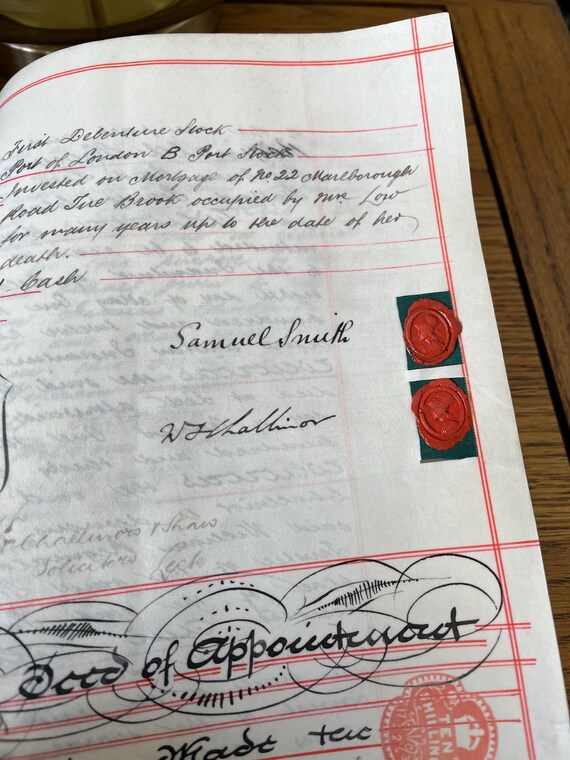 First Debenture Stock
Port of London B Port Stock
Invested on Mortgage of No 22 Marlborough
Road Tue Brook occupied by Mr. Low
for many years up to the date of her
death.
Cash
Samuel Smith
W F Challinor
Challinors & Shaw
Solicitors Leek
Deed of Appointment
Made the
TEN
SHILLIN